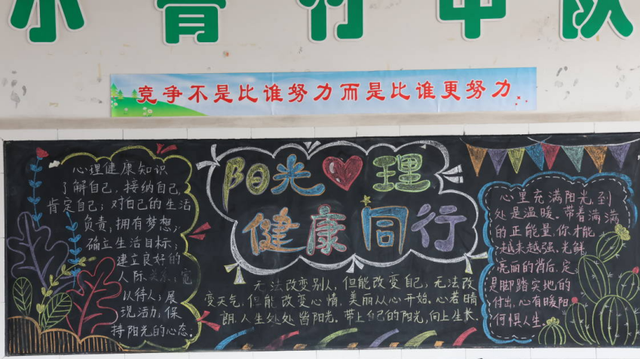 小青竹中队
竞争不是比谁努力而是比谁更努力.
阳光❤理
健康同行
心理健康知识
了解自己,接纳自己,
肯定自己;对自己的生活
负责,拥有梦想,
确立生活目标;
建立良好的
人际关系;宽
以待人;展
现活力,保
持阳光的心态.
无法改变别人,但能改变自己,无法改
变天气,但能改变心情,美丽从心开始,心若晴
朗,人生处处留阳光,带上自己的阳光,向上生长.
心里充满阳光,到
处是温暖,带着满满
的正能量,你才能
越来越强,光鲜
亮丽的背后,定
是脚踏实地的
付出,心有暖阳,
何惧人生.